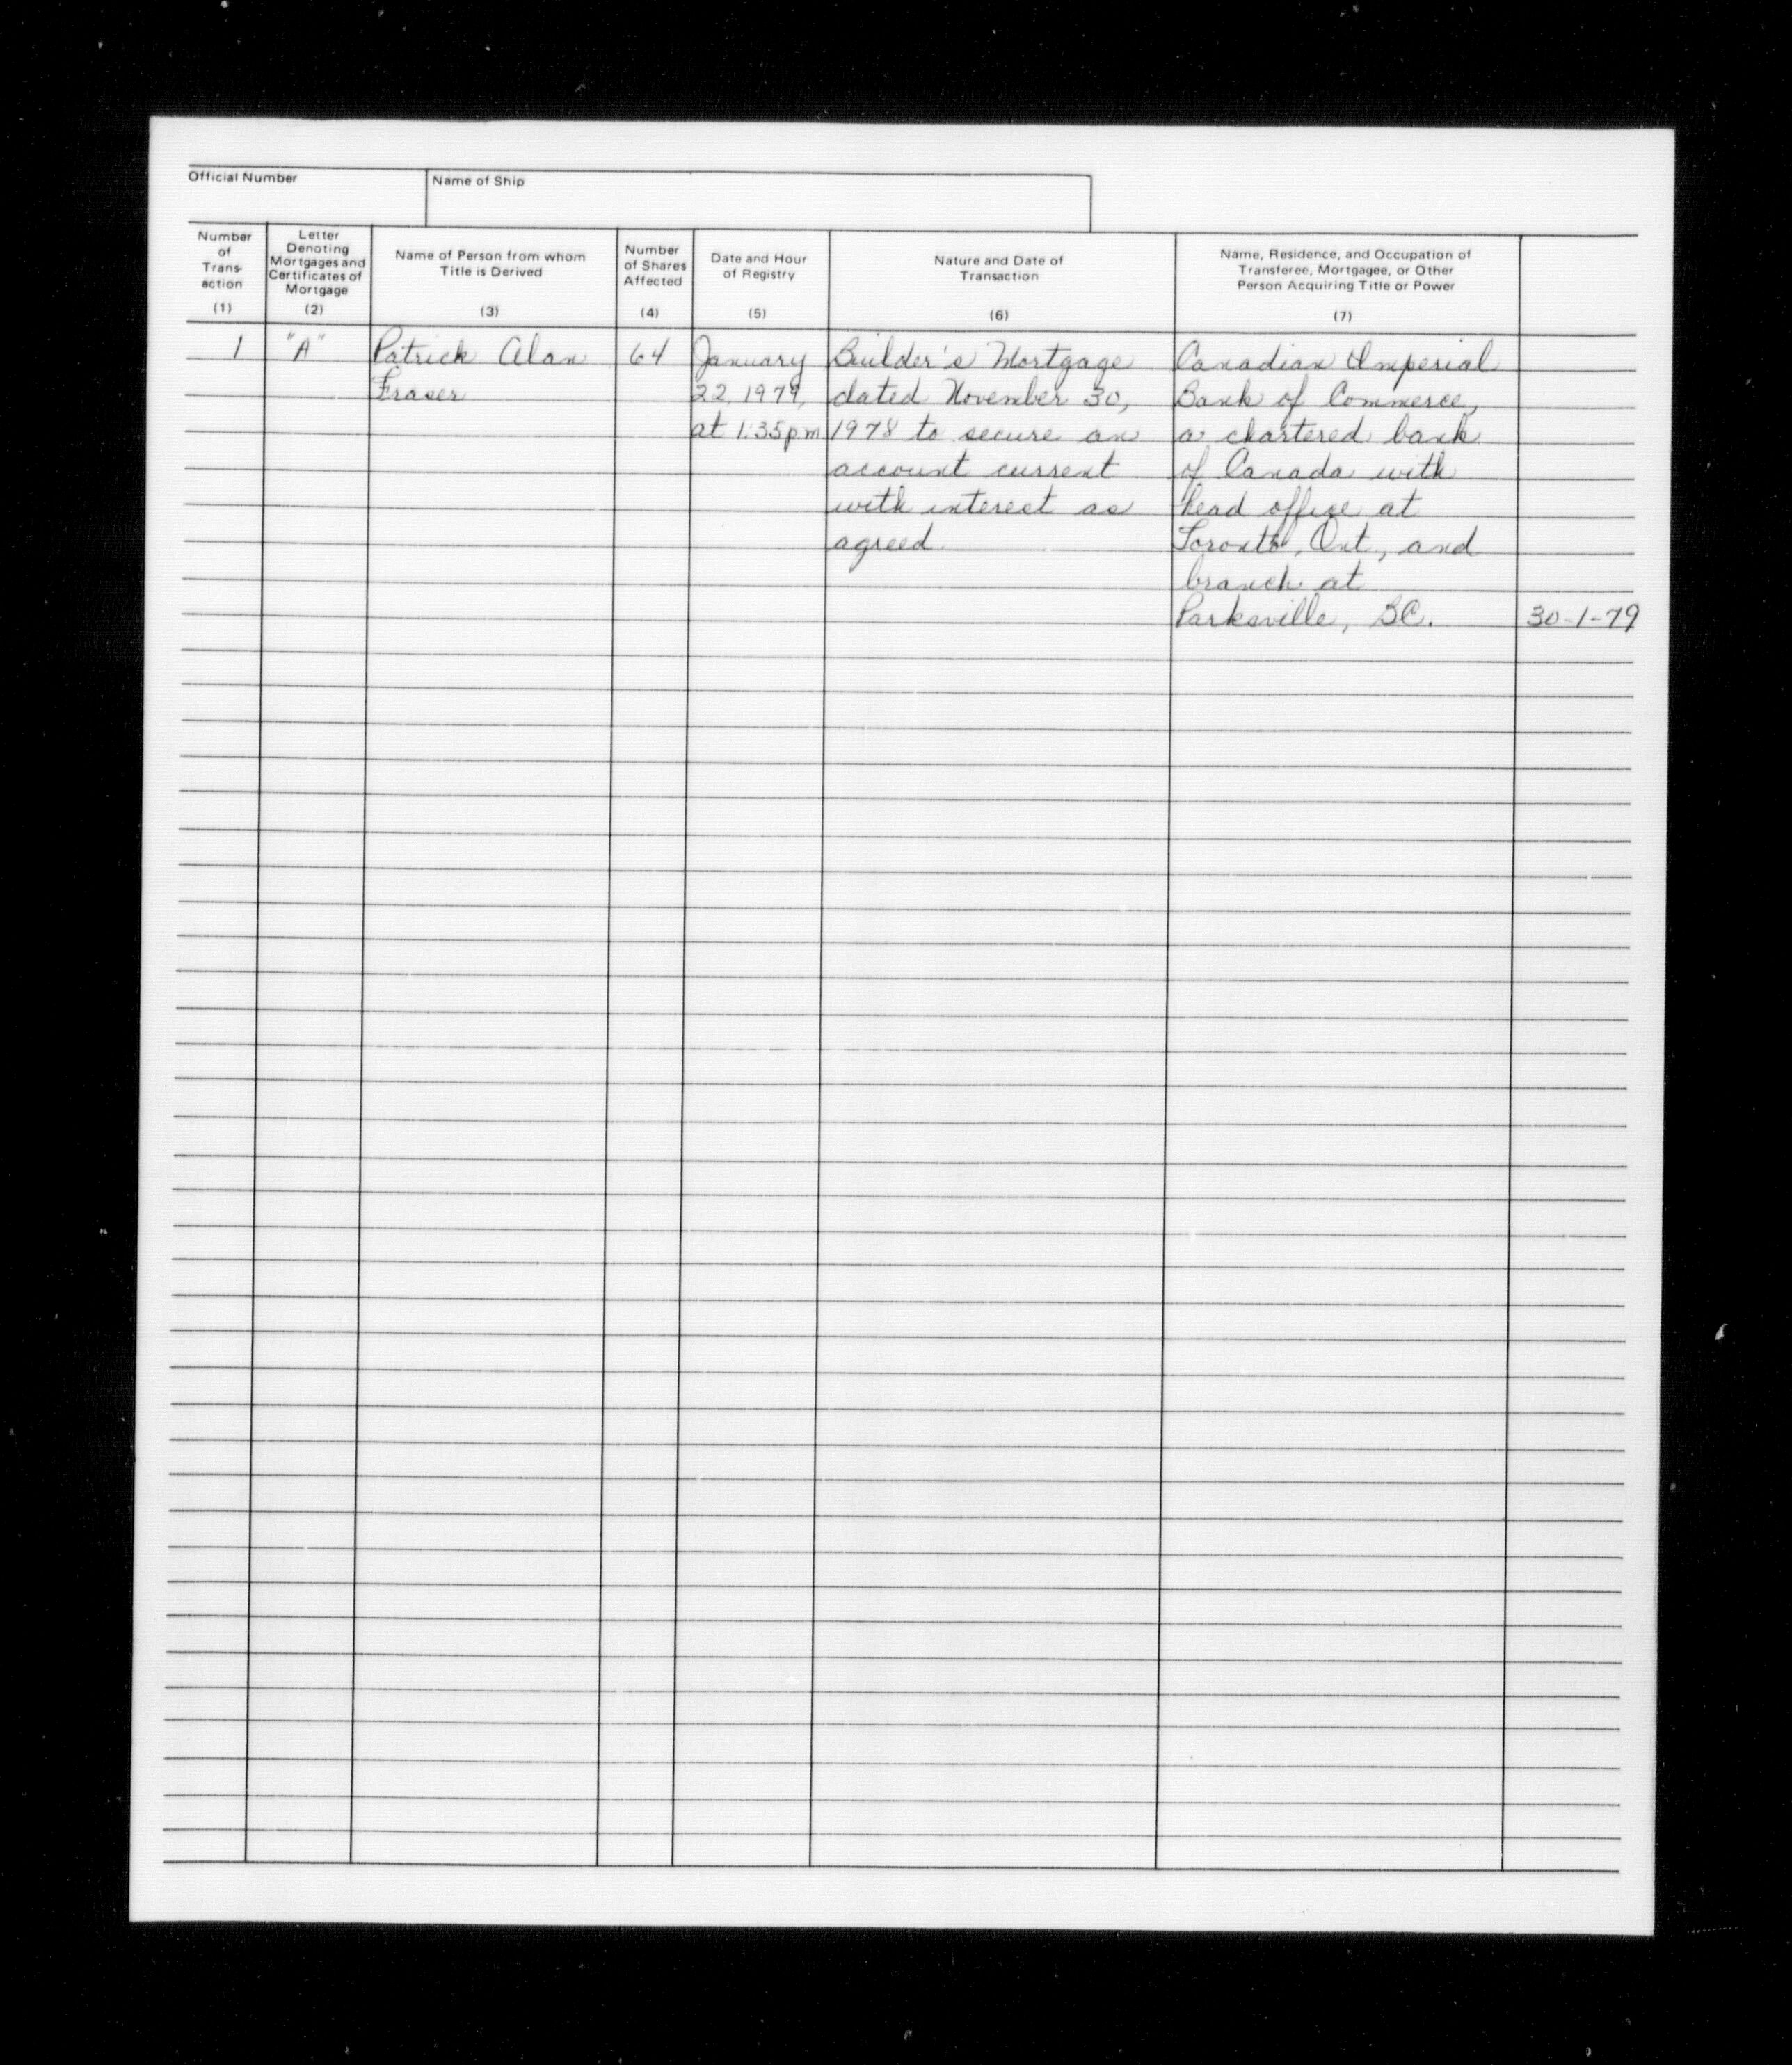 Official Number
Name of Ship
Number
of
Trans-
action
(1)
Letter
Denoting
Mortgages and
Certificates of
Mortgage
(2)
Name of Person from whom
Title is Derived
(3)
Number
of Shares
Affected
(4)
Date and Hour
of Registry
(5)
Nature and Date of
Transaction
(6)
Name, Residence, and Occupation of
Transferee, Mortgagee, or Other
Person Acquiring Title or Power
(7)
1
"A"
Patrick Alan
Fraser
64
January
22, 1979,
at 1:35pm
Builder's Mortgage
dated November 30,
1978 to secure an
account current
with interest as
agreed.
Canadian Imperial
Bank of Commerce,
a chartered bank
of Canada with
head office at
Toronto, Ont., and
branch at
Parksville, BC.
30-1-79